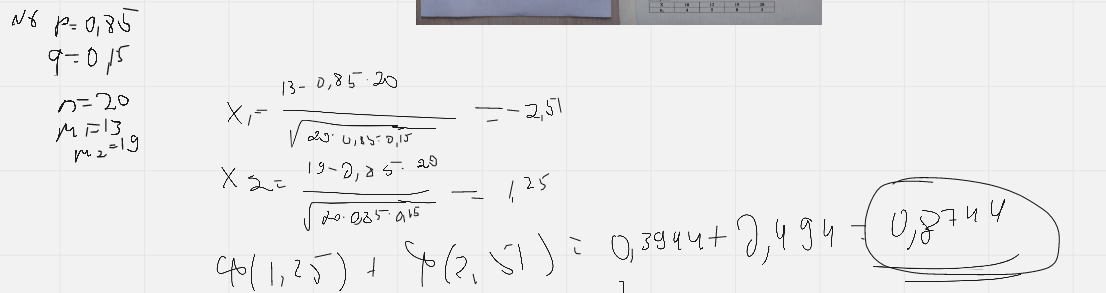 N6 p=0,85
q=0,15
n=20
m1=13
m2=19
X1= (13-0,85·20)/√(20·0,85·0,15) = -2,51
X2= (19-0,85·20)/√(20·0,85·0,15) = 1,25
φ(1,25) + φ(2,51) = 0,3944+0,494 = 0,8744